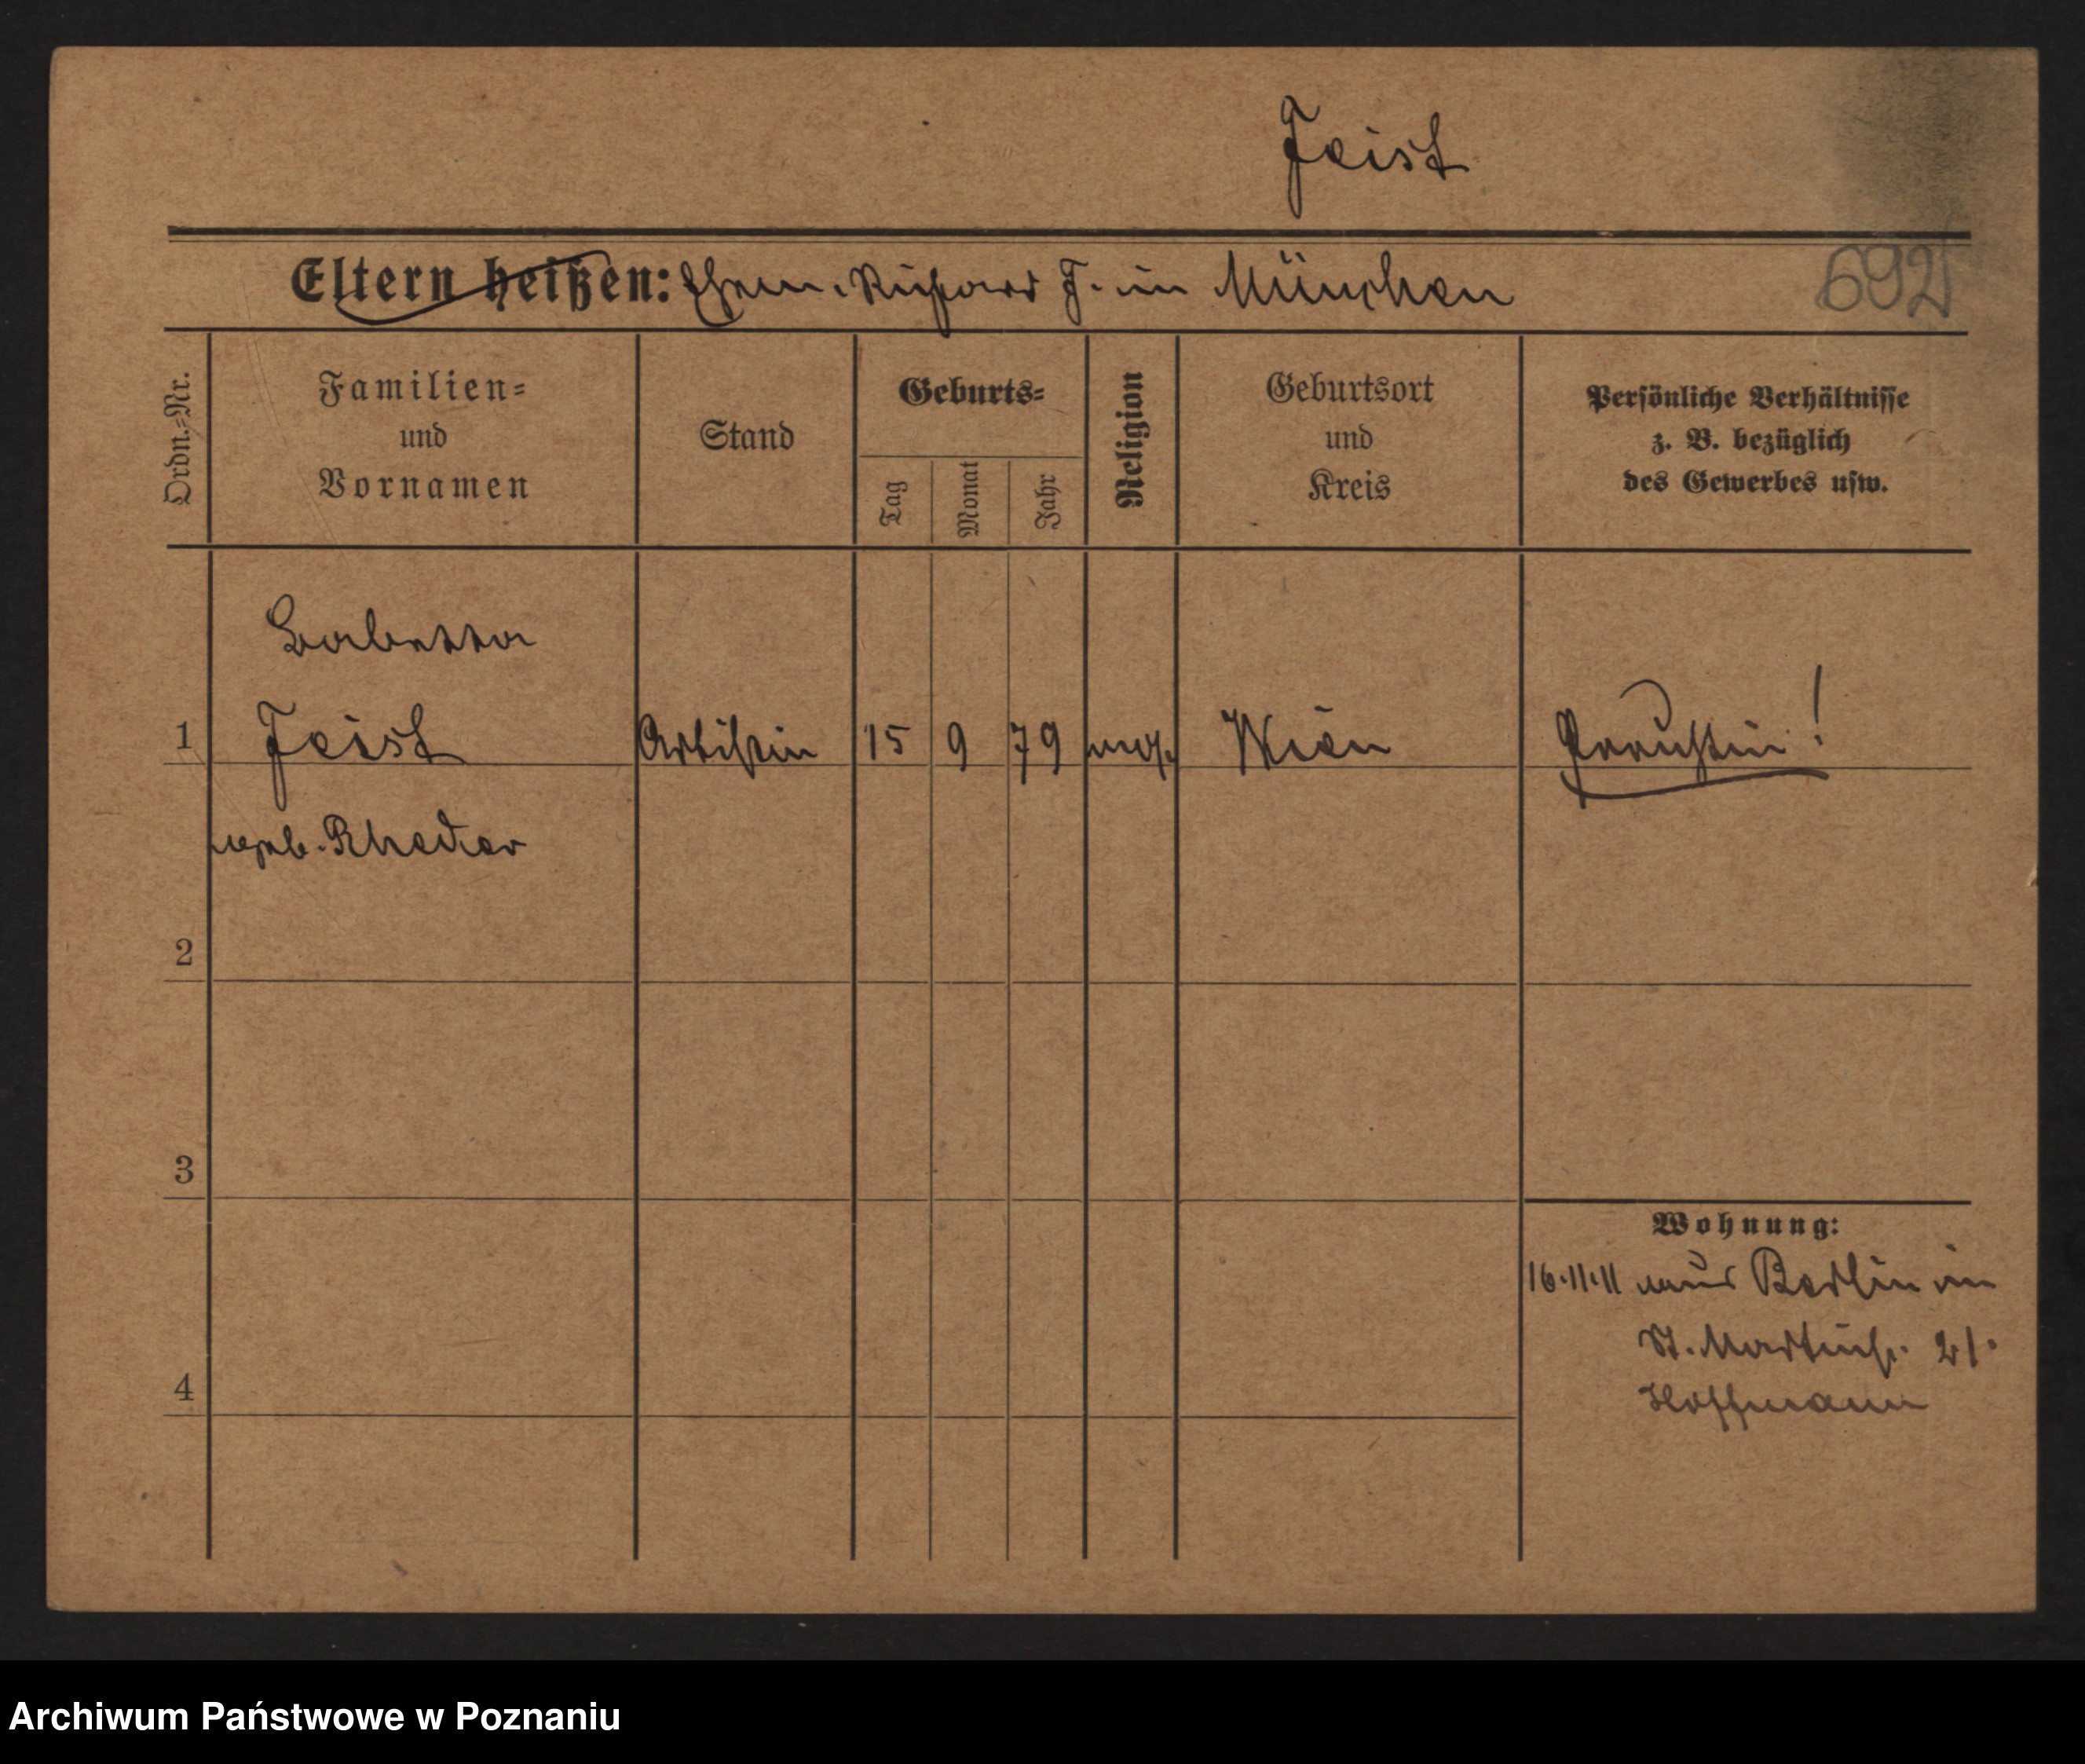 Feist
Eltern heißen: Ehem. Richard F. in München
692
Ordn.-Nr.
Familien-
und
Vornamen
Stand
Geburts-
Tag
Monat
Jahr
Religion
Geburtsort
und
Kreis
Persönliche Verhältnisse
z. B. bezüglich
des Gewerbes usw.
Babette
1 Feist Artistin 15 9 79 mos. Wien Preußin!
geb. Rheder
2
3
4
Wohnung:
16.11.11 aus Berlin in
St. Martinstr. 21.
Hoffmann
Archiwum Państwowe w Poznaniu